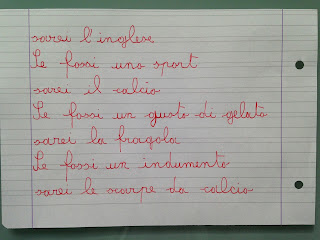 sarei l'inglese
Se fossi uno sport
sarei il calcio
Se fossi un gusto di gelato
sarei la fragola
Se fossi un indumento
sarei le scarpe da calcio